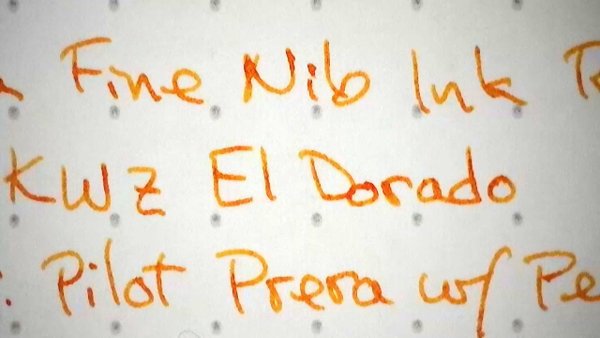 Fine Nib Ink
KWZ El Dorado
: Pilot Prera w/ Pe